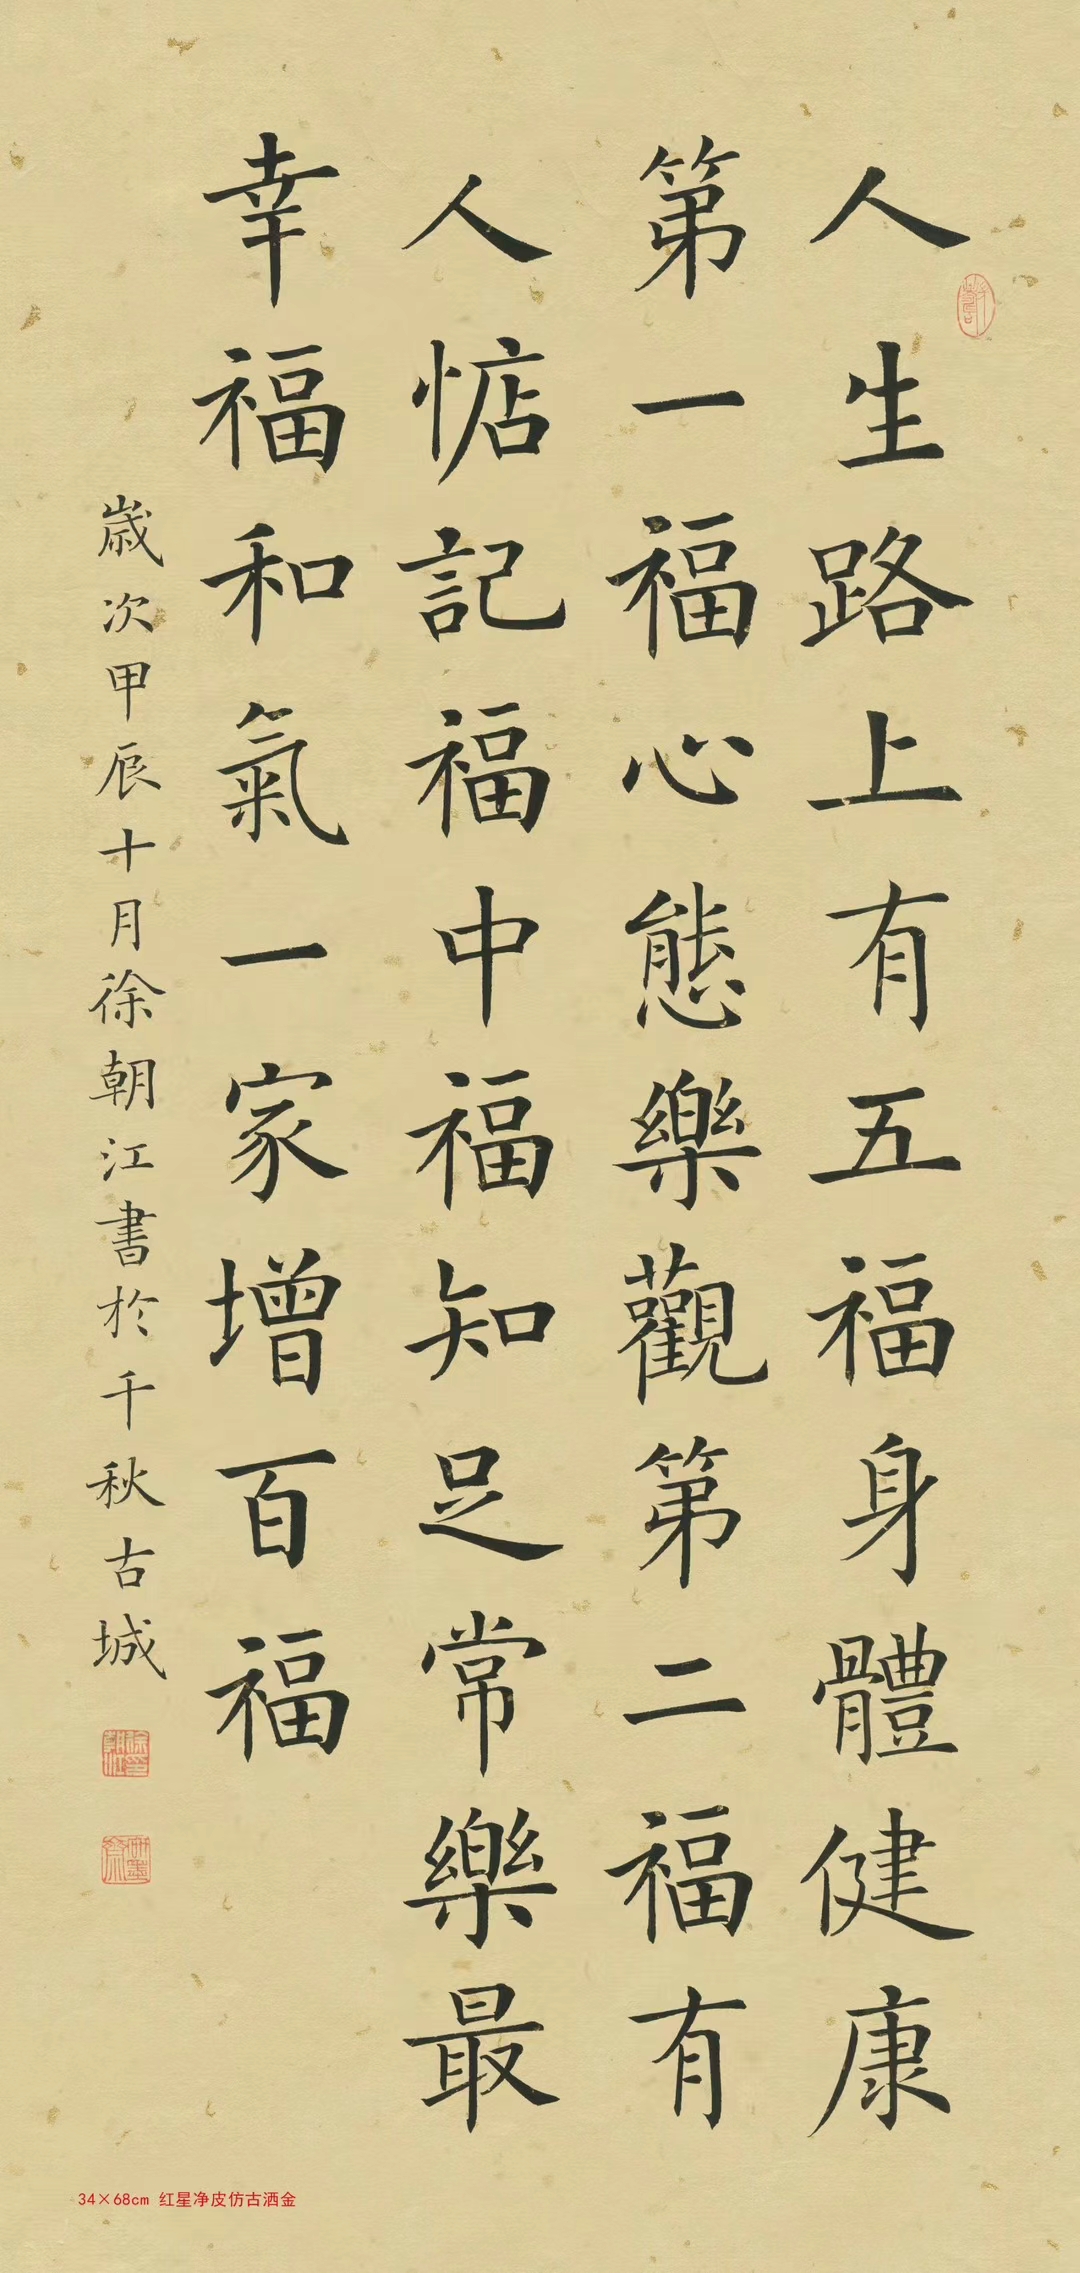 人生路上有五福身體健康
第一福心態樂觀第二福有
人惦記福中福知足常樂最
幸福和氣一家增百福
歳次甲辰十月徐朝江書於千秋古城
34×68cm 红星净皮仿古洒金